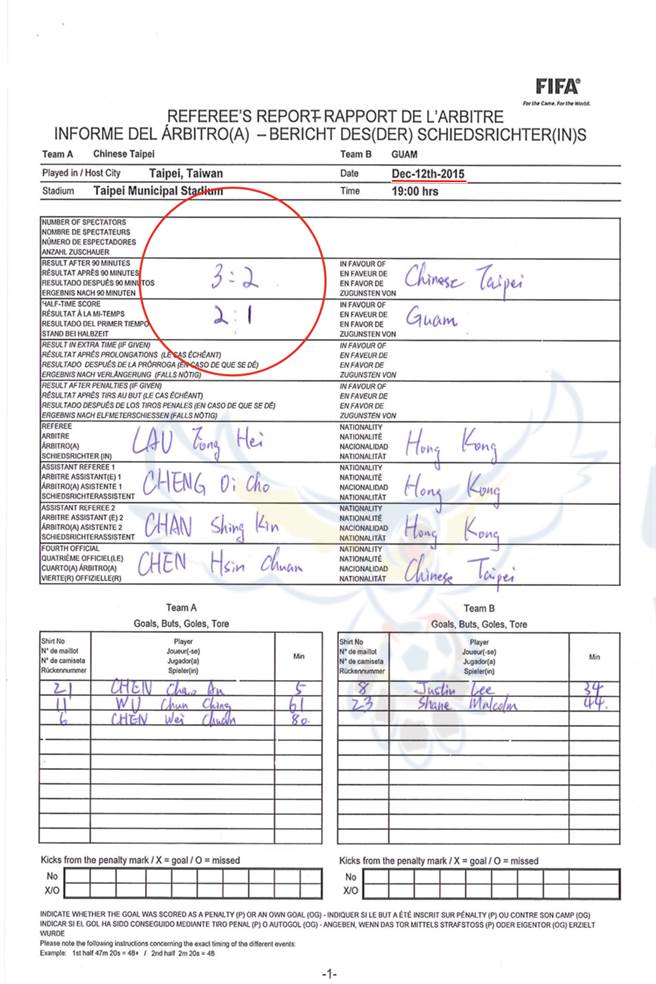 FIFA®
For the Game. For the World.
REFEREE'S REPORT – RAPPORT DE L'ARBITRE
INFORME DEL ÁRBITRO(A) – BERICHT DES(DER) SCHIEDSRICHTER(IN)S
Team A Chinese Taipei Team B GUAM
Played in / Host City Taipei, Taiwan Date Dec-12th-2015
Stadium Taipei Municipal Stadium Time 19:00 hrs
NUMBER OF SPECTATORS
NOMBRE DE SPECTATEURS
NÚMERO DE ESPECTADORES
ANZAHL ZUSCHAUER
RESULT AFTER 90 MINUTES
RÉSULTAT APRÈS 90 MINUTES
RESULTADO DESPUÉS 90 MINUTOS
ERGEBNIS NACH 90 MINUTEN
3:2
IN FAVOUR OF
EN FAVEUR DE
EN FAVOR DE
ZUGUNSTEN VON
Chinese Taipei
HALF-TIME SCORE
RÉSULTAT À LA MI-TEMPS
RESULTADO DEL PRIMER TIEMPO
STAND BEI HALBZEIT
2:1
IN FAVOUR OF
EN FAVEUR DE
EN FAVOR DE
ZUGUNSTEN VON
Guam
RESULT IN EXTRA TIME (IF GIVEN)
RÉSULTAT APRÈS PROLONGATIONS (LE CAS ÉCHÉANT)
RESULTADO DESPUÉS DE LA PRÓRROGA (EN CASO DE QUE SE DÉ)
ERGEBNIS NACH VERLÄNGERUNG (FALLS NÖTIG)
IN FAVOUR OF
EN FAVEUR DE
EN FAVOR DE
ZUGUNSTEN VON
RESULT AFTER PENALTIES (IF GIVEN)
RÉSULTAT APRÈS TIRS AU BUT (LE CAS ÉCHÉANT)
RESULTADO DESPUÉS DE LOS TIROS PENALES (EN CASO DE QUE SE DÉ)
ERGEBNIS NACH ELFMETERSCHIESSEN (FALLS NÖTIG)
IN FAVOUR OF
EN FAVEUR DE
EN FAVOR DE
ZUGUNSTEN VON
REFEREE
ARBITRE
ÁRBITRO(A)
SCHIEDSRICHTER (IN)
LAU Tong Hei
NATIONALITY
NATIONALITÉ
NACIONALIDAD
NATIONALITÄT
Hong Kong
ASSISTANT REFEREE 1
ARBITRE ASSISTANT(E) 1
ÁRBITRO(A) ASISTENTE 1
SCHIEDSRICHTERASSISTENT
CHENG Oi Cho
NATIONALITY
NATIONALITÉ
NACIONALIDAD
NATIONALITÄT
Hong Kong
ASSISTANT REFEREE 2
ARBITRE ASSISTANT (E) 2
ÁRBITRO(A) ASISTENTE 2
SCHIEDSRICHTERASSISTENT
CHAN Shing Kin
NATIONALITY
NATIONALITÉ
NACIONALIDAD
NATIONALITÄT
Hong Kong
FOURTH OFFICIAL
QUATRIÈME OFFICIEL(LE)
CUARTO(A) ÁRBITRO(A)
VIERTE(R) OFFIZIELLE(R)
CHEN Hsin Chuan
NATIONALITY
NATIONALITÉ
NACIONALIDAD
NATIONALITÄT
Chinese Taipei
Team A
Goals, Buts, Goles, Tore
Shirt No
N° de maillot
N° de camiseta
Rückennummer
Player
Joueur(-se)
Jugador(a)
Spieler(in)
Min
21 CHEN Chao An 5
11 WU Chun Ching 61
6 CHEN Wei Chuan 80
Team B
Goals, Buts, Goles, Tore
Shirt No
N° de maillot
N° de camiseta
Rückennummer
Player
Joueur(-se)
Jugador(a)
Spieler(in)
Min
8 Justin Lee 34
23 Shane Malcolm 44
Kicks from the penalty mark / X = goal / O = missed
No
X/O
Kicks from the penalty mark / X = goal / O = missed
No
X/O
INDICATE WHETHER THE GOAL WAS SCORED AS A PENALTY (P) OR AN OWN GOAL (OG) - INDIQUER SI LE BUT A ÉTÉ INSCRIT SUR PÉNALTY (P) OU CONTRE SON CAMP (OG)
INDICAR SI EL GOL HA SIDO CONSEGUIDO MEDIANTE TIRO PENAL (P) O AUTOGOL (OG) - ANGEBEN, WENN DAS TOR MITTELS STRAFSTOSS (P) ODER EIGENTOR (OG) ERZIELT
WURDE
Please note the following instructions concerning the exact timing of the different events:
Example: 1st half 47m 20s = 48+ / 2nd half 2m 20s = 48
-1-